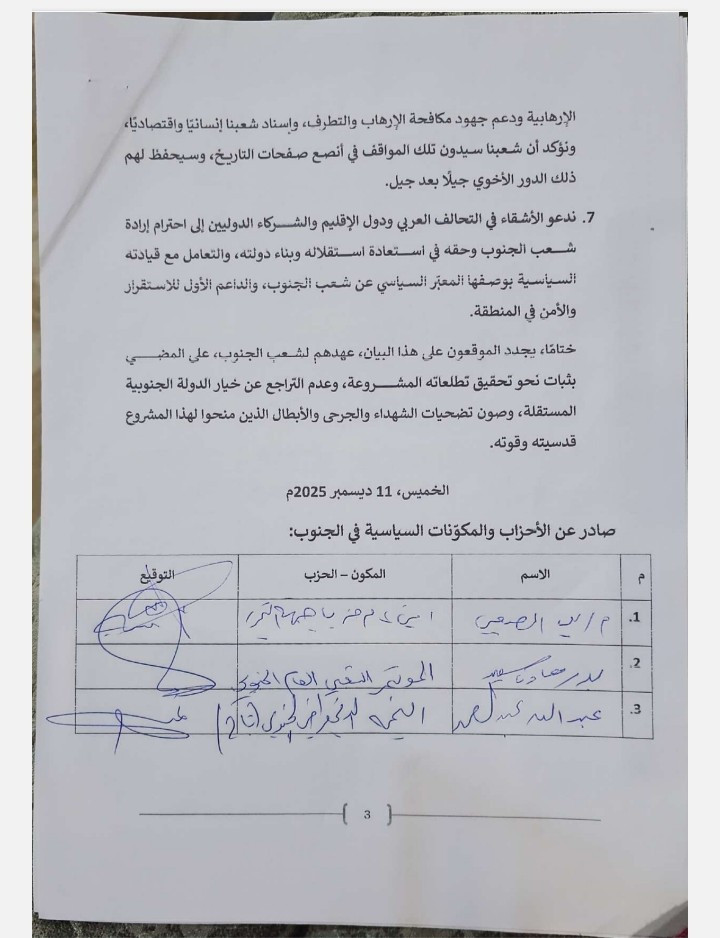 الإرهابية ودعم جهود مكافحة الإرهاب والتطرف، وإسناد شعبنا إنسانيًا واقتصاديًا،
ونؤكد أن شعبنا سيدون تلك المواقف في أنصع صفحات التاريخ، وسيحفظ لهم
ذلك الدور الأخوي جيلًا بعد جيل.
7. ندعو الأشقاء في التحالف العربي ودول الإقليم والشركاء الدوليين إلى احترام إرادة
شعب الجنوب وحقه في استعادة استقلاله وبناء دولته، والتعامل مع قيادته
السياسية بوصفها المعبّر السياسي عن شعب الجنوب، والداعم الأول للاستقرار
والأمن في المنطقة.
ختامًا، يجدد الموقعون على هذا البيان، عهدهم لشعب الجنوب، على المضي
بثبات نحو تحقيق تطلعاته المشروعة، وعدم التراجع عن خيار الدولة الجنوبية
المستقلة، وصون تضحيات الشهداء والجرحى والأبطال الذين منحوا لهذا المشروع
قدسيته وقوته.
الخميس، 11 ديسمبر 2025م
صادر عن الأحزاب والمكوّنات السياسية في الجنوب:
م الاسم المكون – الحزب التوقيع
1.
2. المؤتمر العام الجنوبي
3. عبد الله
3